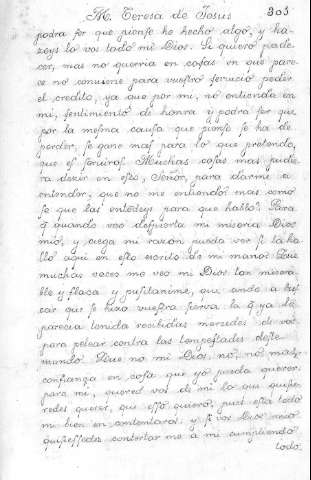 M. Teresa de Jesus 305
podra ser que piense he hecho algo, y ha-
zeys lo vos todo mi Dios. Si quiero pade-
cer, mas no querria en cosas en que pare-
ce no conuiene para vuestro seruicio perder
el credito, ya que por mi, no entienda en
mi, sentimiento de honra y podra ser que
por la mesma causa que pienso se ha de
perder, se gane mas para lo que pretendo,
que es seruiros. Muchas cosas mas pudie
ra dezir en esto Señor, para darme a
entender, que no me entiendo: mas como
se que las entēdeys para que hablo? Para
q quando veo despierta mi miseria Dios
mio, y ciega mi razon pueda ver si la ha-
llo aqui en esto escrito de mi mano. Que
muchas vezes me veo mi Dios tan misera-
ble y flaca y pusilanime, que ando a bus
car que se hizo vuestra sierua la q ya le
parecia tenida recibidas mercedes de vos
para pelear contra las tempestades deste
mundo. Que no mi Dios, no, no mas
confiança en cosa que yo pueda querer
para mi, quered vos de mi lo que quisie
redes querer, que esso quiero, pues esta todo
mi bien en contentaros: y si vos Dios mio
quisiessedes contentar me a mi cumpliendo
todo